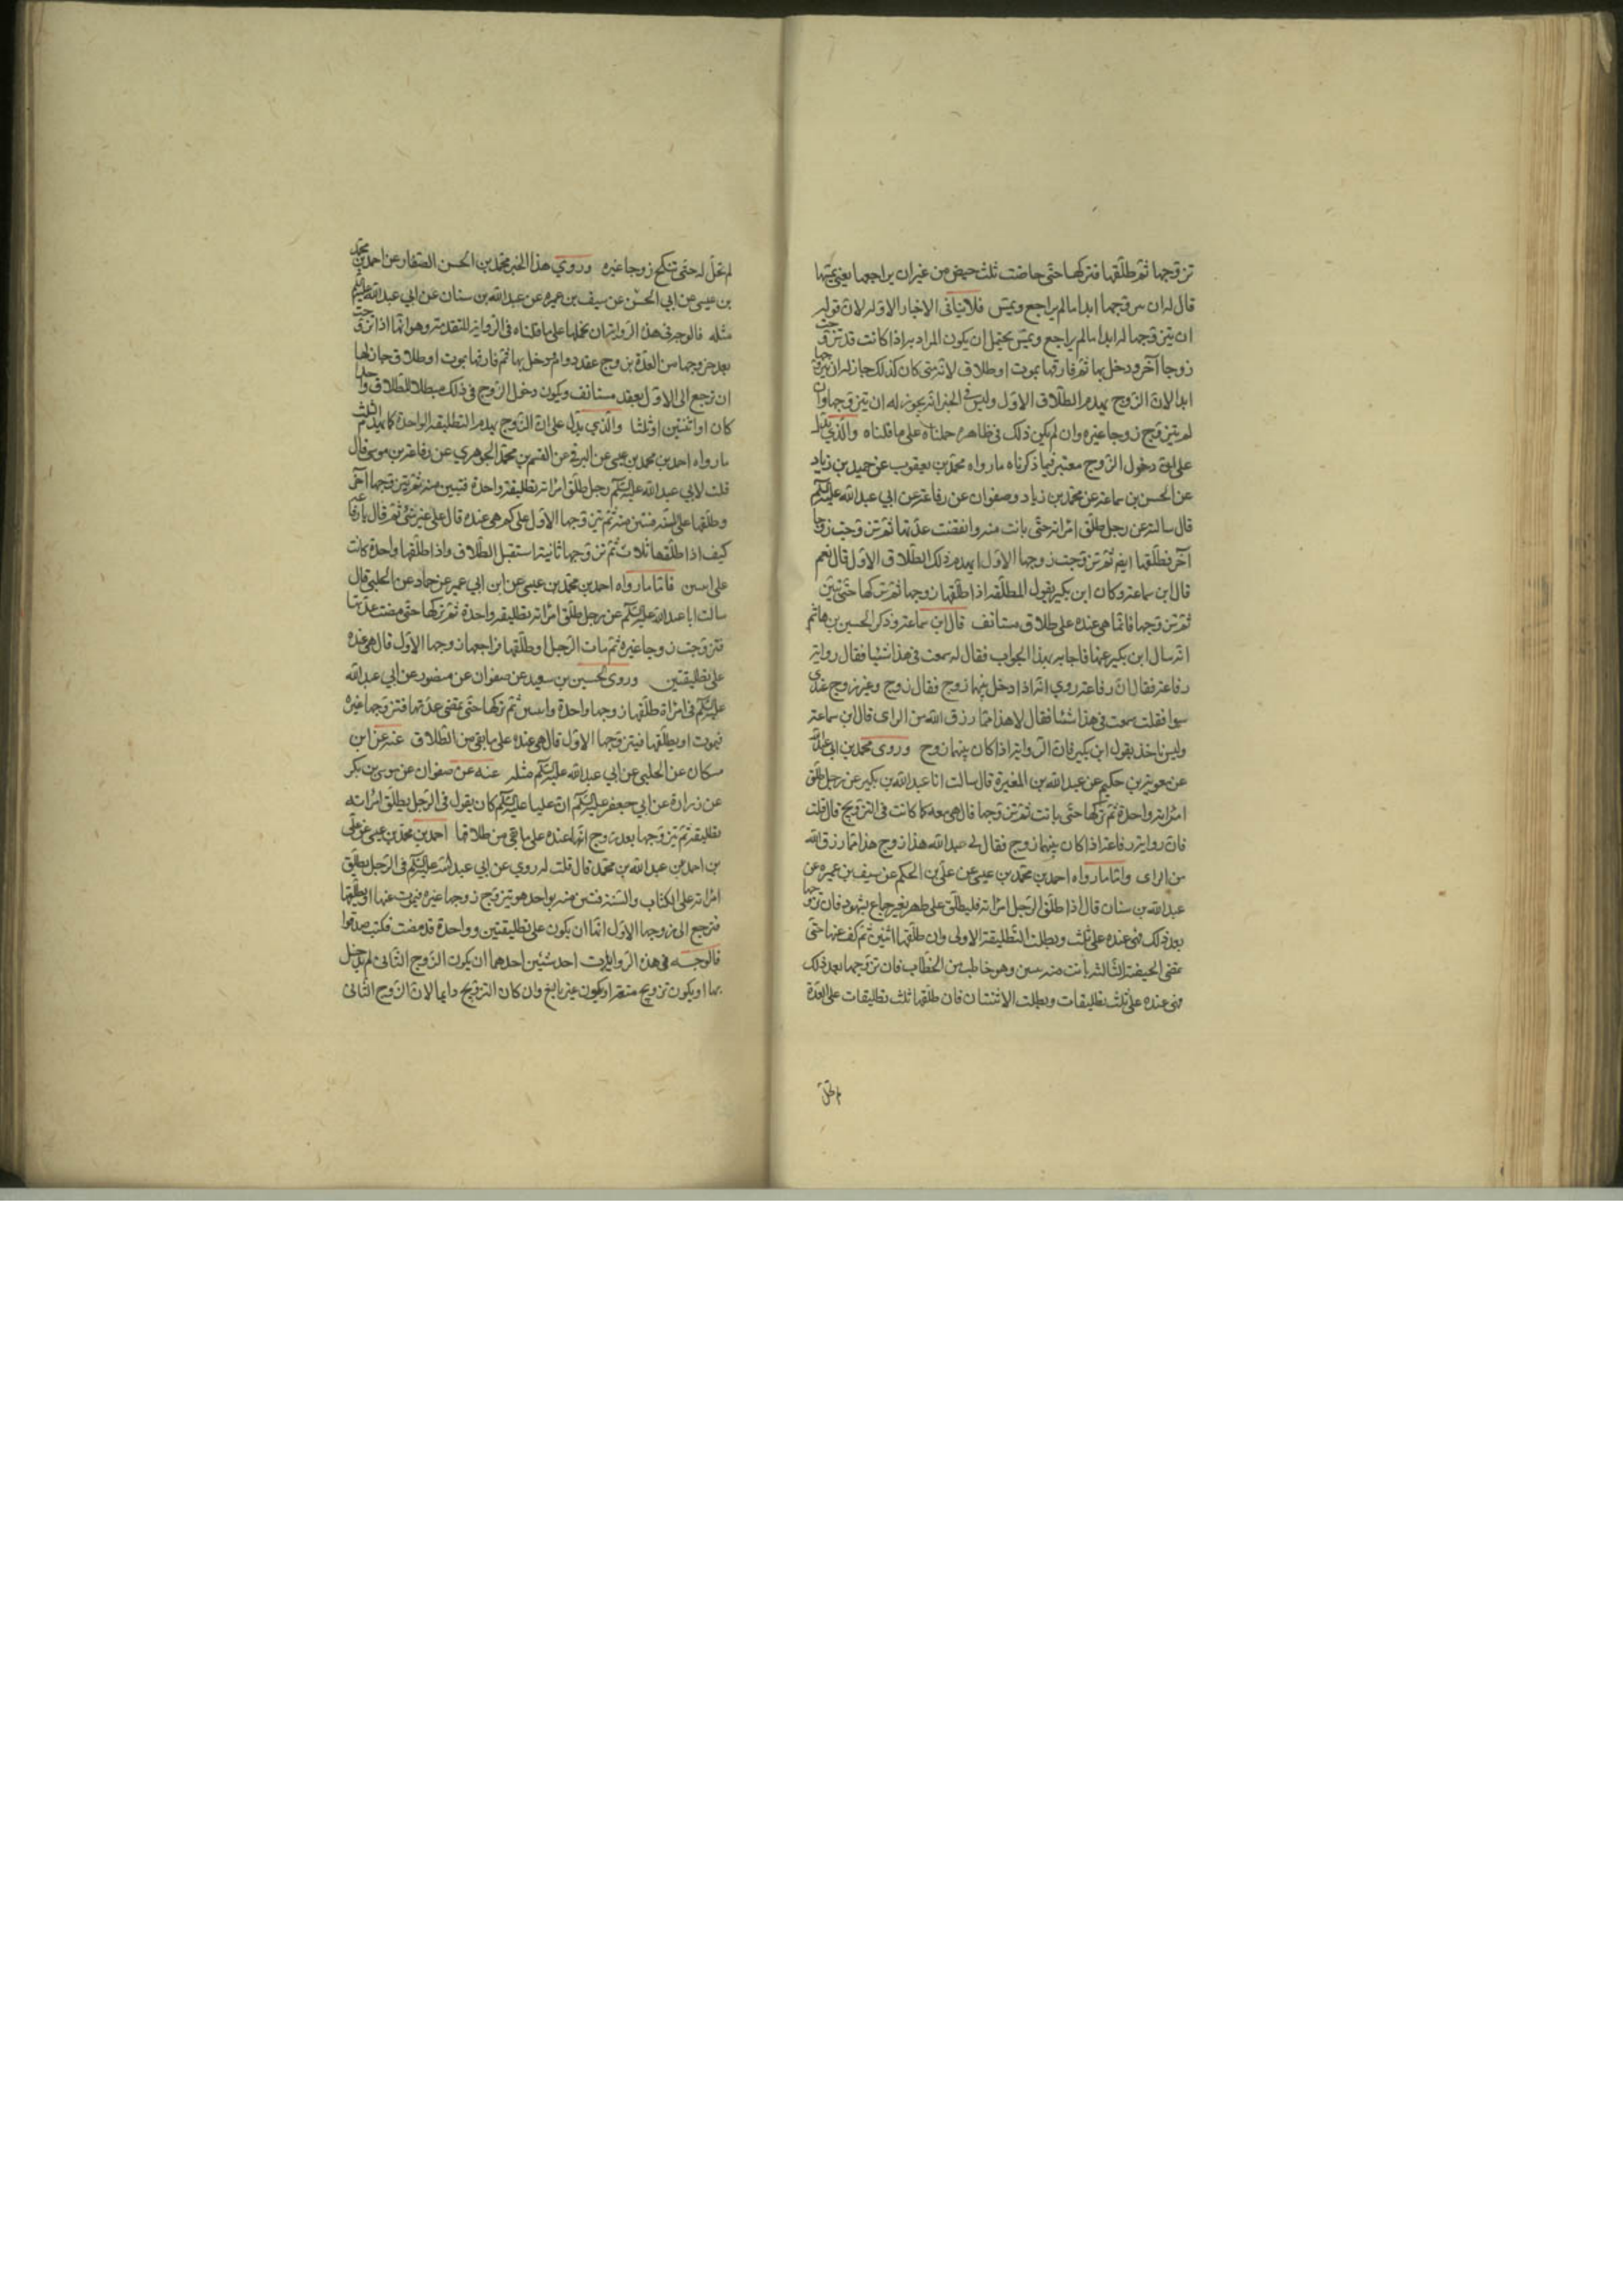 تزوجها ثم طلقها فتركها حتى حاضت ثلث حيض من غير ان يراجعها يعني يمسها
قال له ان يتزوجها ابدا ما لم يراجع ويمس فلا ينافي الاخبار الاوله لان قوله
ان يتزوجها له ابدا ما لم يراجع ويمس يحتمل ان يكون المراد به اذا كانت قد تزوجت
زوجا آخر ودخل بها ثم فارقها بموت او طلاق لانه متى كان كذلك جاز له ان يتزوجها
ابدا لان الزوج يهدم الطلاق الاول وليس في الخبر انه يجوز له ان يتزوجها وان
لم يتزوج زوجا غيره وان لم يكن ذلك في ظاهره حملناه على ما قلناه والذي يدل
على ان دخول الزوج معتبر فيما ذكرناه ما رواه محمد بن يعقوب عن حميد بن زياد
عن الحسن بن سماعة عن محمد بن زياد وصفوان عن رفاعة عن ابي عبد الله عليه السلم
قال سالته عن رجل طلق امراته حتى بانت منه وانقضت عدتها ثم تزوجت زوجا
آخر فطلقها ايضا ثم تزوجت زوجها الاول ايهدم ذلك الطلاق الاول قال نعم
قال ابن سماعة وكان ابن بكير يقول المطلقه اذا طلقها زوجها ثم تركها حتى تبين
ثم تزوجها فانما هي عنده على طلاق مستانف قال ابن سماعة وذكر الحسين بن هاشم
انه سال ابن بكير عنها فاجابه بهذا الجواب فقال له سمعت في هذا شيئا فقال رواية
رفاعة فقال ان رفاعة روى انه اذا دخل بينهما زوج فقال زوج وغير زوج عندي
سوا فقلت سمعت في هذا شيئا فقال لا هذا مما رزق الله من الراى قال ابن سماعة
وليس ناخذ بقول ابن بكير فان الرواية اذا كان بينهما زوج وروى محمد بن ابي عبد الله
عن معوية بن حكيم عن عبد الله بن المغيرة قال سالت انا عبد الله بن بكير عن رجل طلق
امراته واحدة ثم تركها حتى بانت ثم تزوجها قال هي معه كما كانت في التزويج قال قلت
فان رواية رفاعة اذا كان بينهما زوج فقال لي عبد الله هذا زوج هذا مما رزق الله
من الراى واما ما رواه احمد بن محمد بن عيسى عن علي بن الحكم عن سيف بن عميره عن
عبد الله بن سنان قال اذا طلق الرجل امراته فليطلق على طهر بغير جماع بشهود فان تزوجها
بعد ذلك فهي عنده على ثلث وبطلت التطليقة الاولى وان طلقها اثنين ثم كف عنها حتى
تمضي الحيضة الثالثة بانت منه بثنتين وهو خاطب من الخطاب فان تزوجها بعد ذلك
فهي عنده على ثلث تطليقات وبطلت الاثنتان فان طلقها ثلث تطليقات على العدة
لم تحل
لم تحل له حتى تنكح زوجا غيره وروى هذا الخبر محمد بن الحسن الصفار عن احمد بن محمد
بن عيسى عن ابي الحسن عن سيف بن عميره عن عبد الله بن سنان عن ابي عبد الله عليه السلم
مثله فالوجه في هذه الرواية ان نحملها على ما قلناه في الرواية المتقدمة وهو انما اذا تزوجت
بعد خروجها من العدة بزوج عقد دوام ودخل بها ثم فارقها بموت او طلاق جاز لها
ان ترجع الى الاول بعقد مستانف ويكون دخول الزوج في ذلك مبطلا للطلاق واحدا
كان او اثنتين او ثلثا والذي يدل على ان الزوج يهدم التطليقة الواحدة كما يهدم الثلث
ما رواه احمد بن محمد بن عيسى عن البرقي عن القسم بن محمد الجوهري عن رفاعة بن موسى قال
قلت لابي عبد الله عليه السلم رجل طلق امراته تطليقة واحدة فتبين منه ثم يتزوجها آخر
وطلقها على السنة فتبين منه ثم يتزوجها الاول على كم هي عنده قال على غير شئ ثم قال يا رفاعة
كيف اذا طلقها ثلاث ثم تزوجها ثانية استقبل الطلاق واذا طلقها واحدة كانت
على اثنتين فاما ما رواه احمد بن محمد بن عيسى عن ابن ابي عمير عن حماد عن الحلبي قال
سالت ابا عبد الله عليه السلم عن رجل طلق امراته تطليقة واحدة ثم تركها حتى مضت عدتها
فتزوجت زوجا غيره ثم مات الرجل او طلقها فراجعها زوجها الاول قال هي عنده
على تطليقتين وروى الحسين بن سعيد عن صفوان عن منصور عن ابي عبد الله
عليه السلم في امراة طلقها زوجها واحدة واثنتين ثم تركها حتى تمضي عدتها فتزوجها غيره
فيموت او يطلقها فيتزوجها الاول قال هي عنده على ما بقي من الطلاق عنه عن ابن
مسكان عن الحلبي عن ابي عبد الله عليه السلم مثله عنه عن صفوان عن موسى بن بكر
عن زرارة عن ابي جعفر عليه السلم ان عليا عليه السلم كان يقول في الرجل يطلق امراته
تطليقة ثم يتزوجها بعد زوج انها عنده على ما بقي من طلاقها احمد بن محمد بن عيسى عن علي
بن احمد عن عبد الله بن محمد قال قلت له روي عن ابي عبد الله عليه السلم في الرجل يطلق
امراته على الكتاب والسنة فتبين منه بواحدة وتتزوج زوجا غيره فيموت عنها او يطلقها
فترجع الى زوجها الاول انما ان يكون على تطليقتين وواحدة قد مضت فكتب صدقوا
فالوجه في هذه الروايات احد شيئين احدهما ان يكون الزوج الثاني لم يدخل
بها او يكون تزويج متعة او يكون غير بالغ وان كان التزويج دايما لان الزوج الثاني